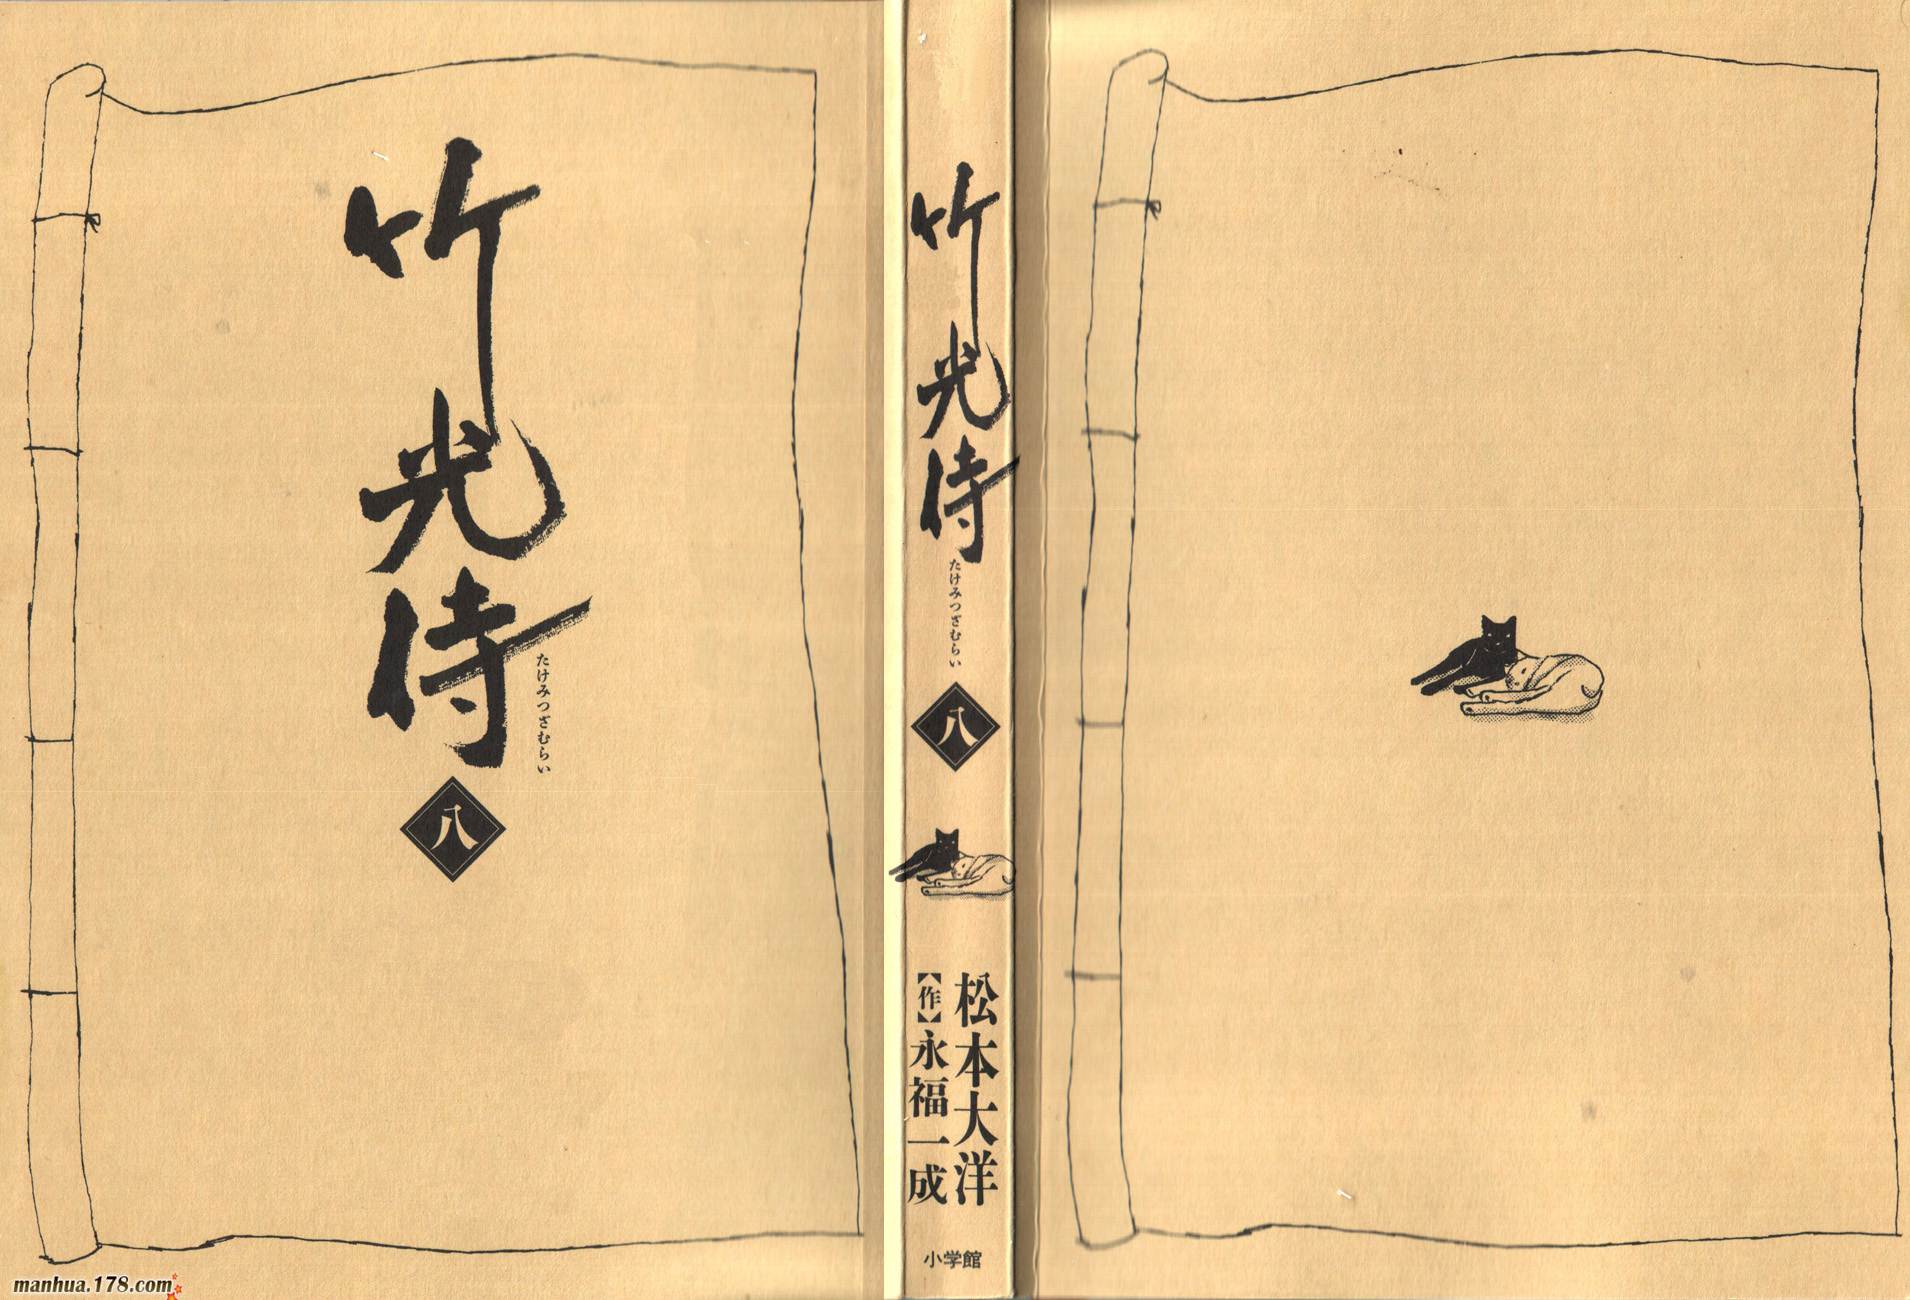 竹光侍
たけみつざむらい
八
竹光侍
たけみつざむらい
八
松本大洋
【作】永福一成
小学館
manhua.178.com